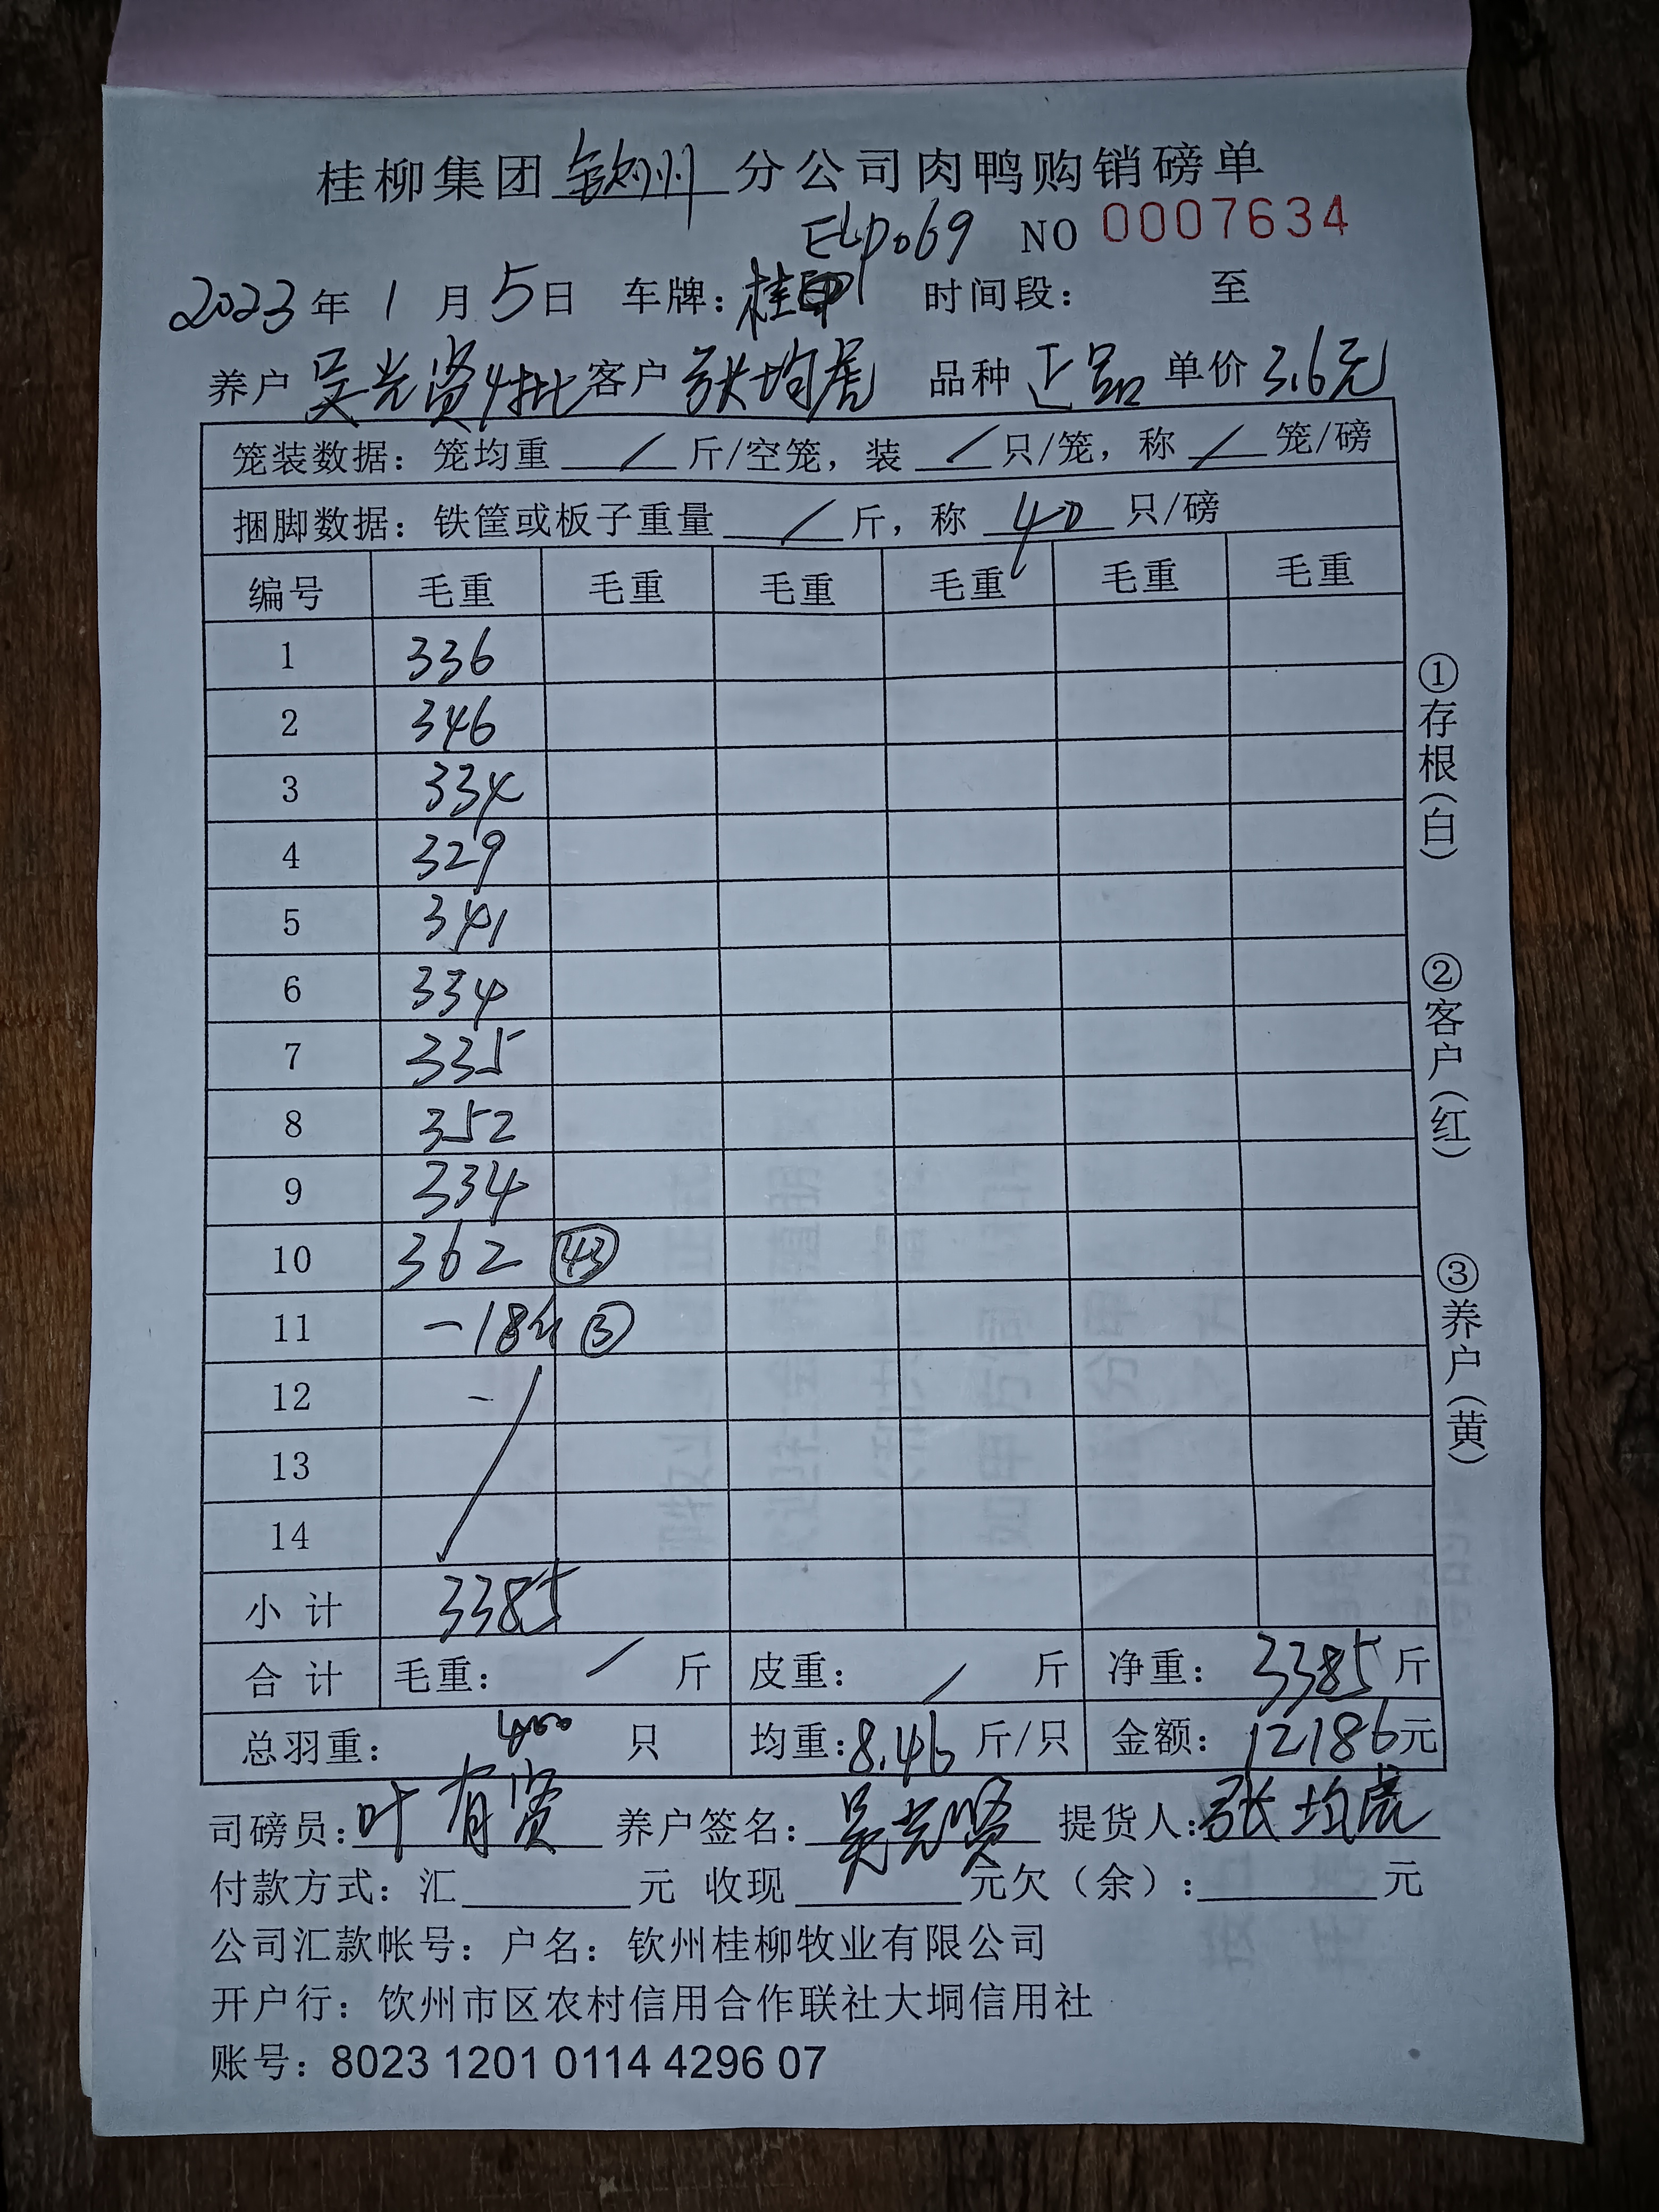 桂柳集团 钦州 分公司肉鸭购销磅单
NO 0007634
2023年 1 月 5日 车牌: 桂 时间段: 至
养户 吴光贤4批 客户 张均虎 品种 正品 单价 3.6元
笼装数据: 笼均重 / 斤/空笼, 装 / 只/笼, 称 / 笼/磅
捆脚数据: 铁筐或板子重量 / 斤, 称 40 只/磅
编号 毛重 毛重 毛重 毛重 毛重 毛重
1 336
2 346
3 334
4 329
5 341
6 334
7 335
8 352
9 334
10 362 43
11 -18斤 3
12 -
13
14
小计 3385
合计 毛重: / 斤 皮重: / 斤 净重: 3385 斤
总羽重: 400 只 均重: 8.46 斤/只 金额: 12186元
司磅员: 叶有贤 养户签名: 吴光贤 提货人: 张均虎
付款方式: 汇 元 收现 元欠(余): 元
公司汇款帐号: 户名: 钦州桂柳牧业有限公司
开户行: 钦州市区农村信用合作联社大垌信用社
账号: 8023 1201 0114 4296 07
①存根(白)
②客户(红)
③养户(黄)